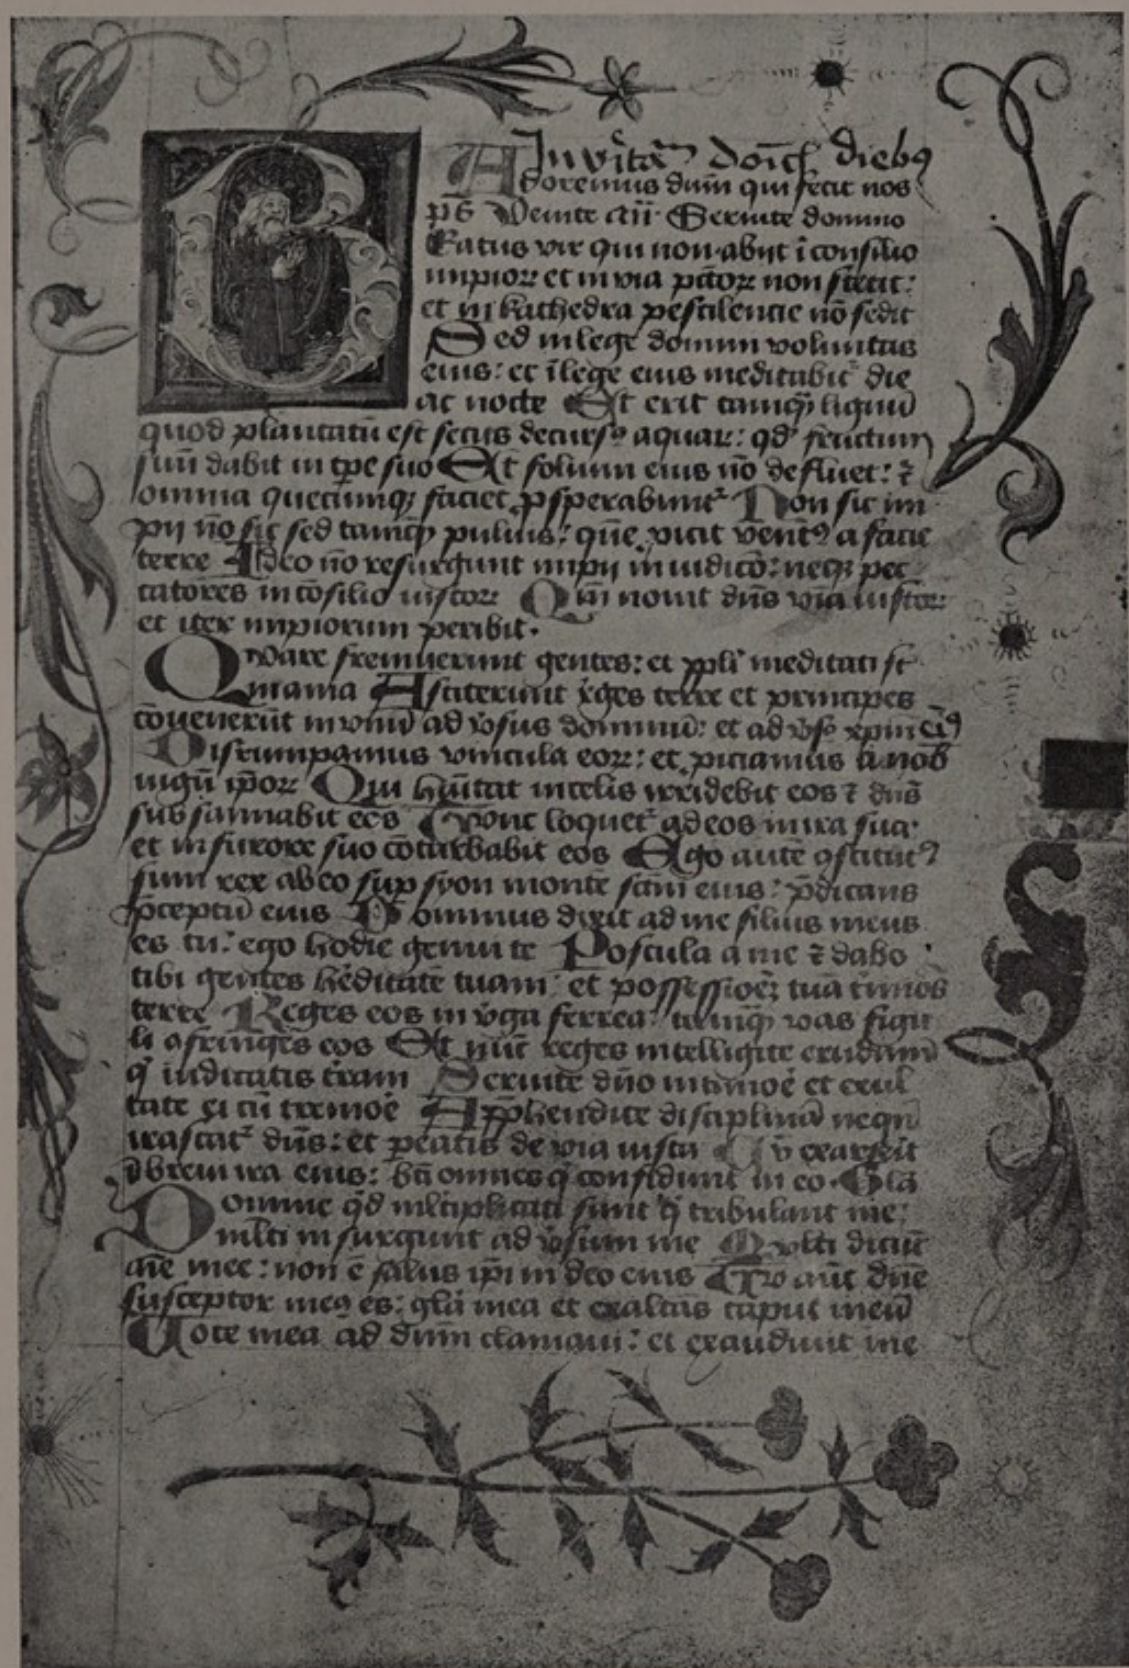 Invitā Doīcł diebꝰ
Adoremus dnm̄ qui fecit nos
ps̄ Venite añ Seruite domino
Eatus vir qui non abijt ī consilio
impioꝝ et in via pctōꝝ non stetit:
et in kathedra pestilencie nō sedit
Sed in lege domini voluntas
eius: et ī lege eius meditabit᷑ die
ac nocte Et erit tamqꝫ lignū
quod plantatū est secus decursꝰ aquaꝝ: qd̓ fructum
suū dabit in tp̄e suo Et folium eius nō defluet: ⁊
omnia quecumqꝫ faciet ꝓsperabunt᷑ Non sic im
pij nō sic sed tamqꝫ puluis: quē ꝓicit ventꝰ a facie
terre Ideo nō resurgunt impij in iudicō: neqꝫ pec
catores in cōsilio iustoꝝ Qm̄ nouit dn̄s viā iustoꝝ
et iter impiorum peribit.
Qware fremuerunt gentes: et ppl̄i meditati st̄
inania Astiterunt r̓ges terre et principes
cōuenerūt in vnū ad v̓sus dominū: et ad v̓sꝰ xpm̄ eiꝰ
Disrumpamus vincula eoꝝ: et ꝓiciamus a nob̄
iugū ip̄oꝝ Qui hītat in celis irridebit eos ⁊ dn̄s
subsannabit eos Twnc loquet᷑ ad eos in ira sua
et in furore suo cōturbabit eos Ego autē ꝯstitutꝰ
sum rex ab eo suꝑ syon montē scm̄ eius: p̄dicans
p̄ceptū eius Dominus dixit ad me filius meus
es tu: ego hodie genui te Postula a me ⁊ dabo
tibi gentes hēditatē tuam: et possessiōeꝫ tuā t̓mīos
terre Reges eos in v̓ga ferrea: tamqꝫ vas figu
li ꝯfringes eos Et nūc reges intelligite erudimī
q̓ iudicatis t̓ram Seruite dn̄o in timoē et exul
tate ei cū tremoē App̄hendite disciplinā neqn̄
irascat᷑ dn̄s: et peatis de via iusta Cv̄ exarserit
ī breui ira eius: bt̄i omnes q̓ confidunt in eo. Gl̄a
Domine qd̓ ml̄tiplicati sunt q̓ tribulant me:
ml̄ti insurgunt ad v̓sum me Mvlti dicūt
aīe mee: non ē salus ip̄i in deo eius Tw aūt dn̄e
susceptor meꝰ es: gl̄a mea et exaltans caput meū
Uoce mea ad dn̄m clamaui: et exaudiuit me